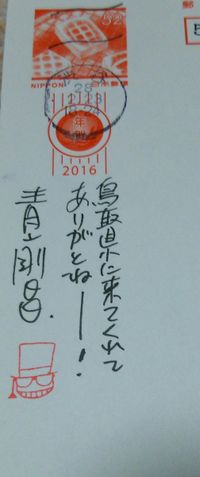 52
NIPPON
28
年賀
2016
鳥取県に来てくれて
ありがとねー!
青山剛昌.